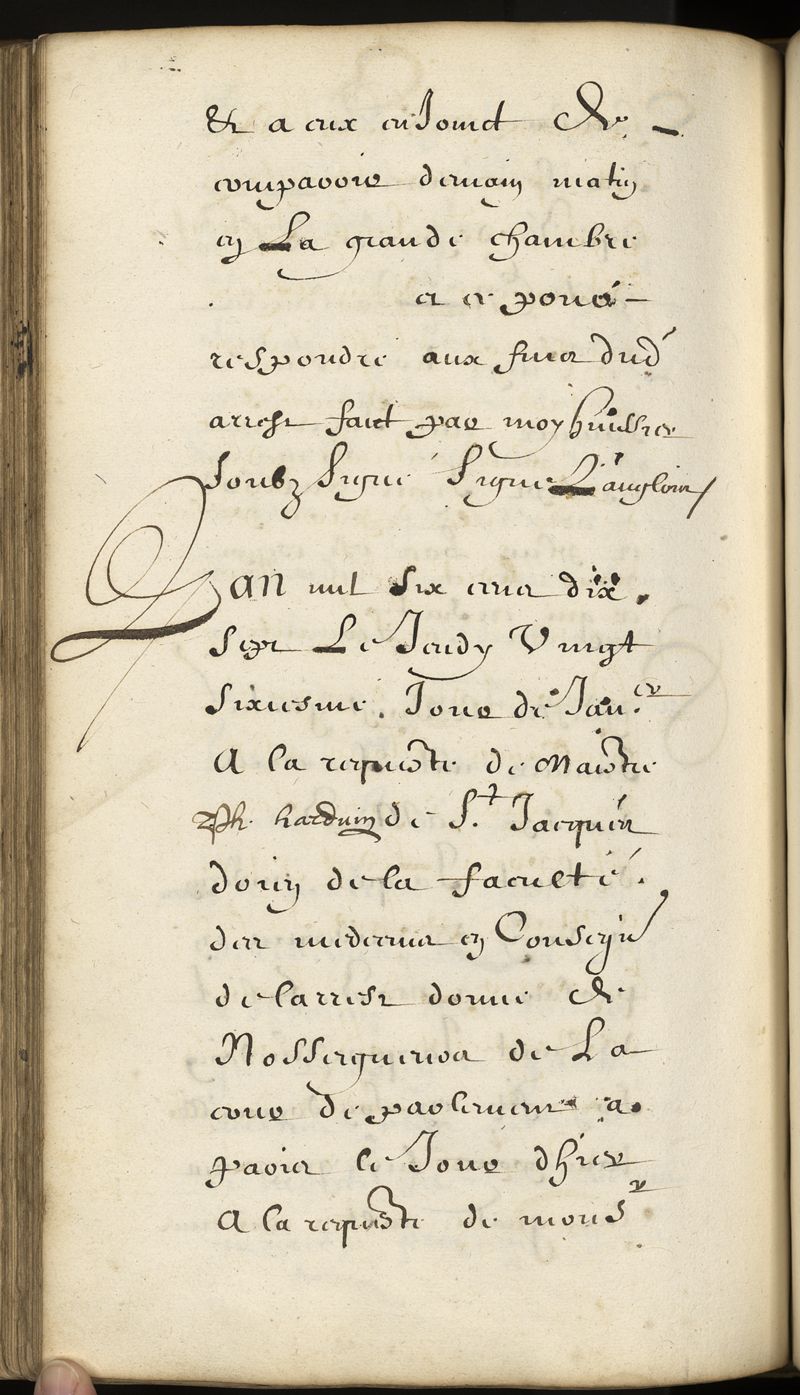 Et a eux enJoinct de
comparoir demain matin
en La grande chambre
et ce pour
respondre aux fins dud
arrest faict par moy huissier
soubz signé signe Langlois
Lan mil six cens dix
sept Le Jeudy Vingt
sixiesme Jour de Janer
A la requeste de Maistre
Ph. harduin de St Jacques
doien de la faculté
des medecins en Consequ
de larrest donné de
Nosseigneurs de La
cour de parlement a
paris le Jour dhier
A la requeste de monsr